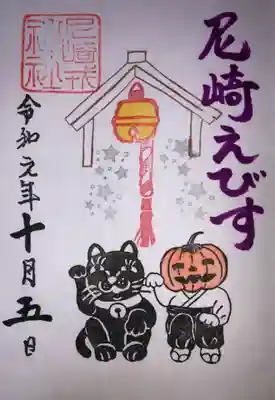 尼崎えびす
尼崎戎
神社
令和元年十月五日